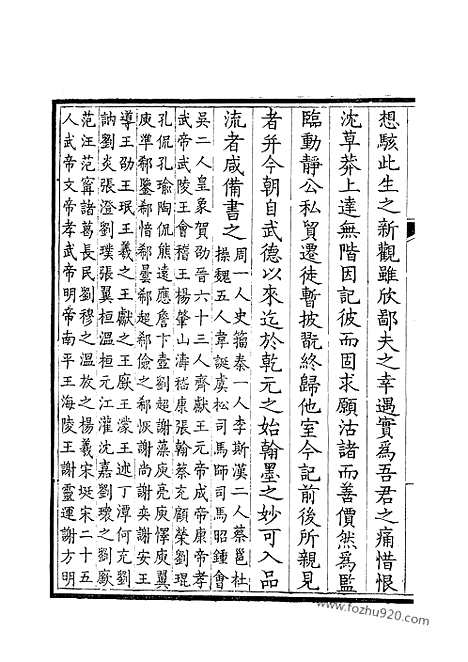 想駭此生之新觀雖欣鄙夫之幸遇實爲吾君之痛惜恨
沈草莽上達無階因記彼而固求願沽諸而善價然爲監
臨動靜公私貿遷徒暫披翫終歸他室今記前後所親見
者幷今朝自武德以來迄於乾元之始翰墨之妙可入品
流者咸備書之周一人史籀秦一人李斯漢二人蔡邕杜
操魏五人韋誕虞松司馬師司馬昭鍾會
吳二人皇象賀劭晉六十三人齊獻王元帝成帝康帝孝
武帝武陵王會稽王楊肇山濤嵇康張翰蔡克顧榮劉琨
孔侃孔瑜陶侃熊遠應詹卞壺劉超謝藻庾亮庾懌庾翼
庾準郗鑒郗愔郗曇郗超郗儉之郗恢謝尚謝奕謝安王
導王劭王珉王羲之王獻之王廞王蒙王述丁潭何充劉
訥劉炎張澄劉璞張翼桓溫桓元江灌沈嘉劉瓌之劉廞
范汪范甯諸葛長民劉穆之溫放之楊羲宋珽宋二十五
人武帝文帝孝武帝明帝南平王海陵王謝靈運謝方明
www.fozhu920.com